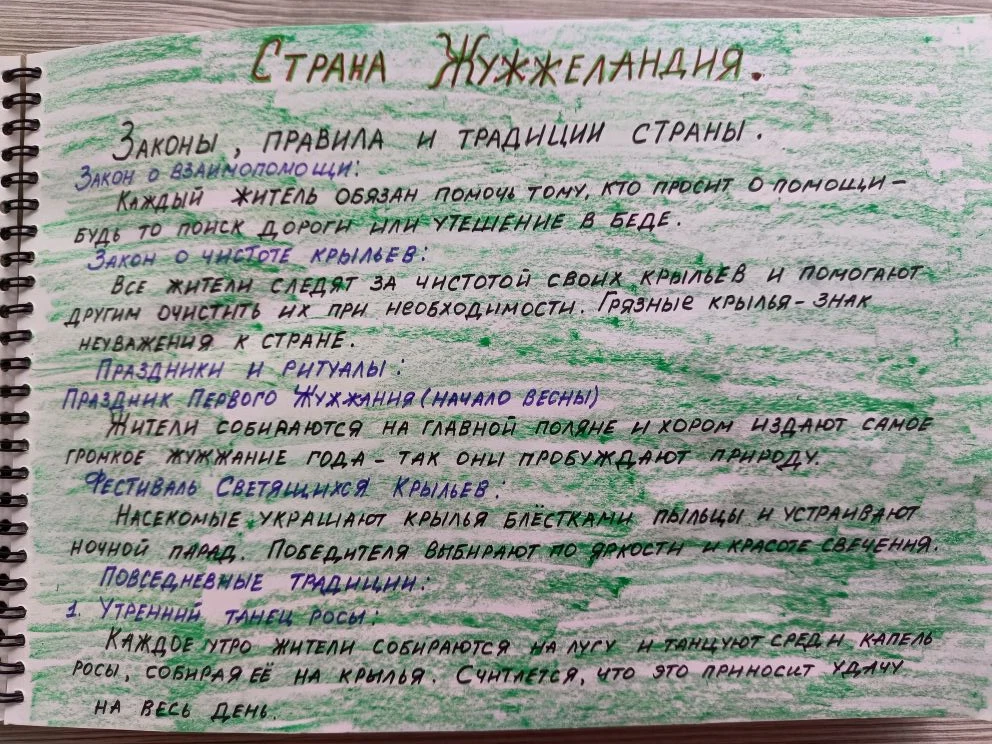 Страна Жужжеландия.
Законы, правила и традиции страны.
Закон о взаимопомощи:
Каждый житель обязан помочь тому, кто просит о помощи –
будь то поиск дороги или утешение в беде.
Закон о чистоте крыльев:
Все жители следят за чистотой своих крыльев и помогают
другим очистить их при необходимости. Грязные крылья – знак
неуважения к стране.
Праздники и ритуалы:
Праздник Первого Жужжания (начало весны)
Жители собираются на главной поляне и хором издают самое
громкое жужжание года – так они пробуждают природу.
Фестиваль Светящихся Крыльев:
Насекомые украшают крылья блёстками пыльцы и устраивают
ночной парад. Победителя выбирают по яркости и красоте свечения.
Повседневные традиции:
1. Утренний танец росы:
Каждое утро жители собираются на лугу и танцуют среди капель
росы, собирая её на крылья. Считается, что это приносит удачу
на весь день.